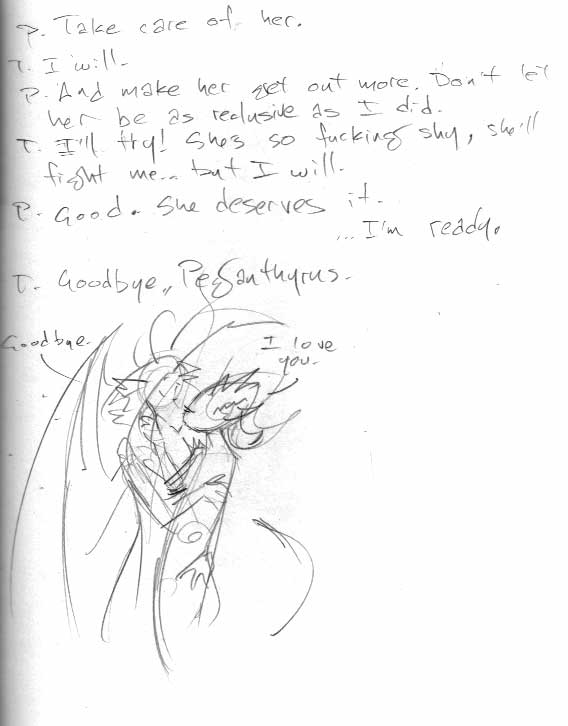 P. Take care of her.
T. I will.
P. And make her get out more. Don't let
her be as reclusive as I did.
T. I'll try! She's so fucking shy, she'll
fight me.. but I will.
P. Good. She deserves it.
...I'm ready.
T. Goodbye,, Peganthyrus.
Goodbye.
I love
you.